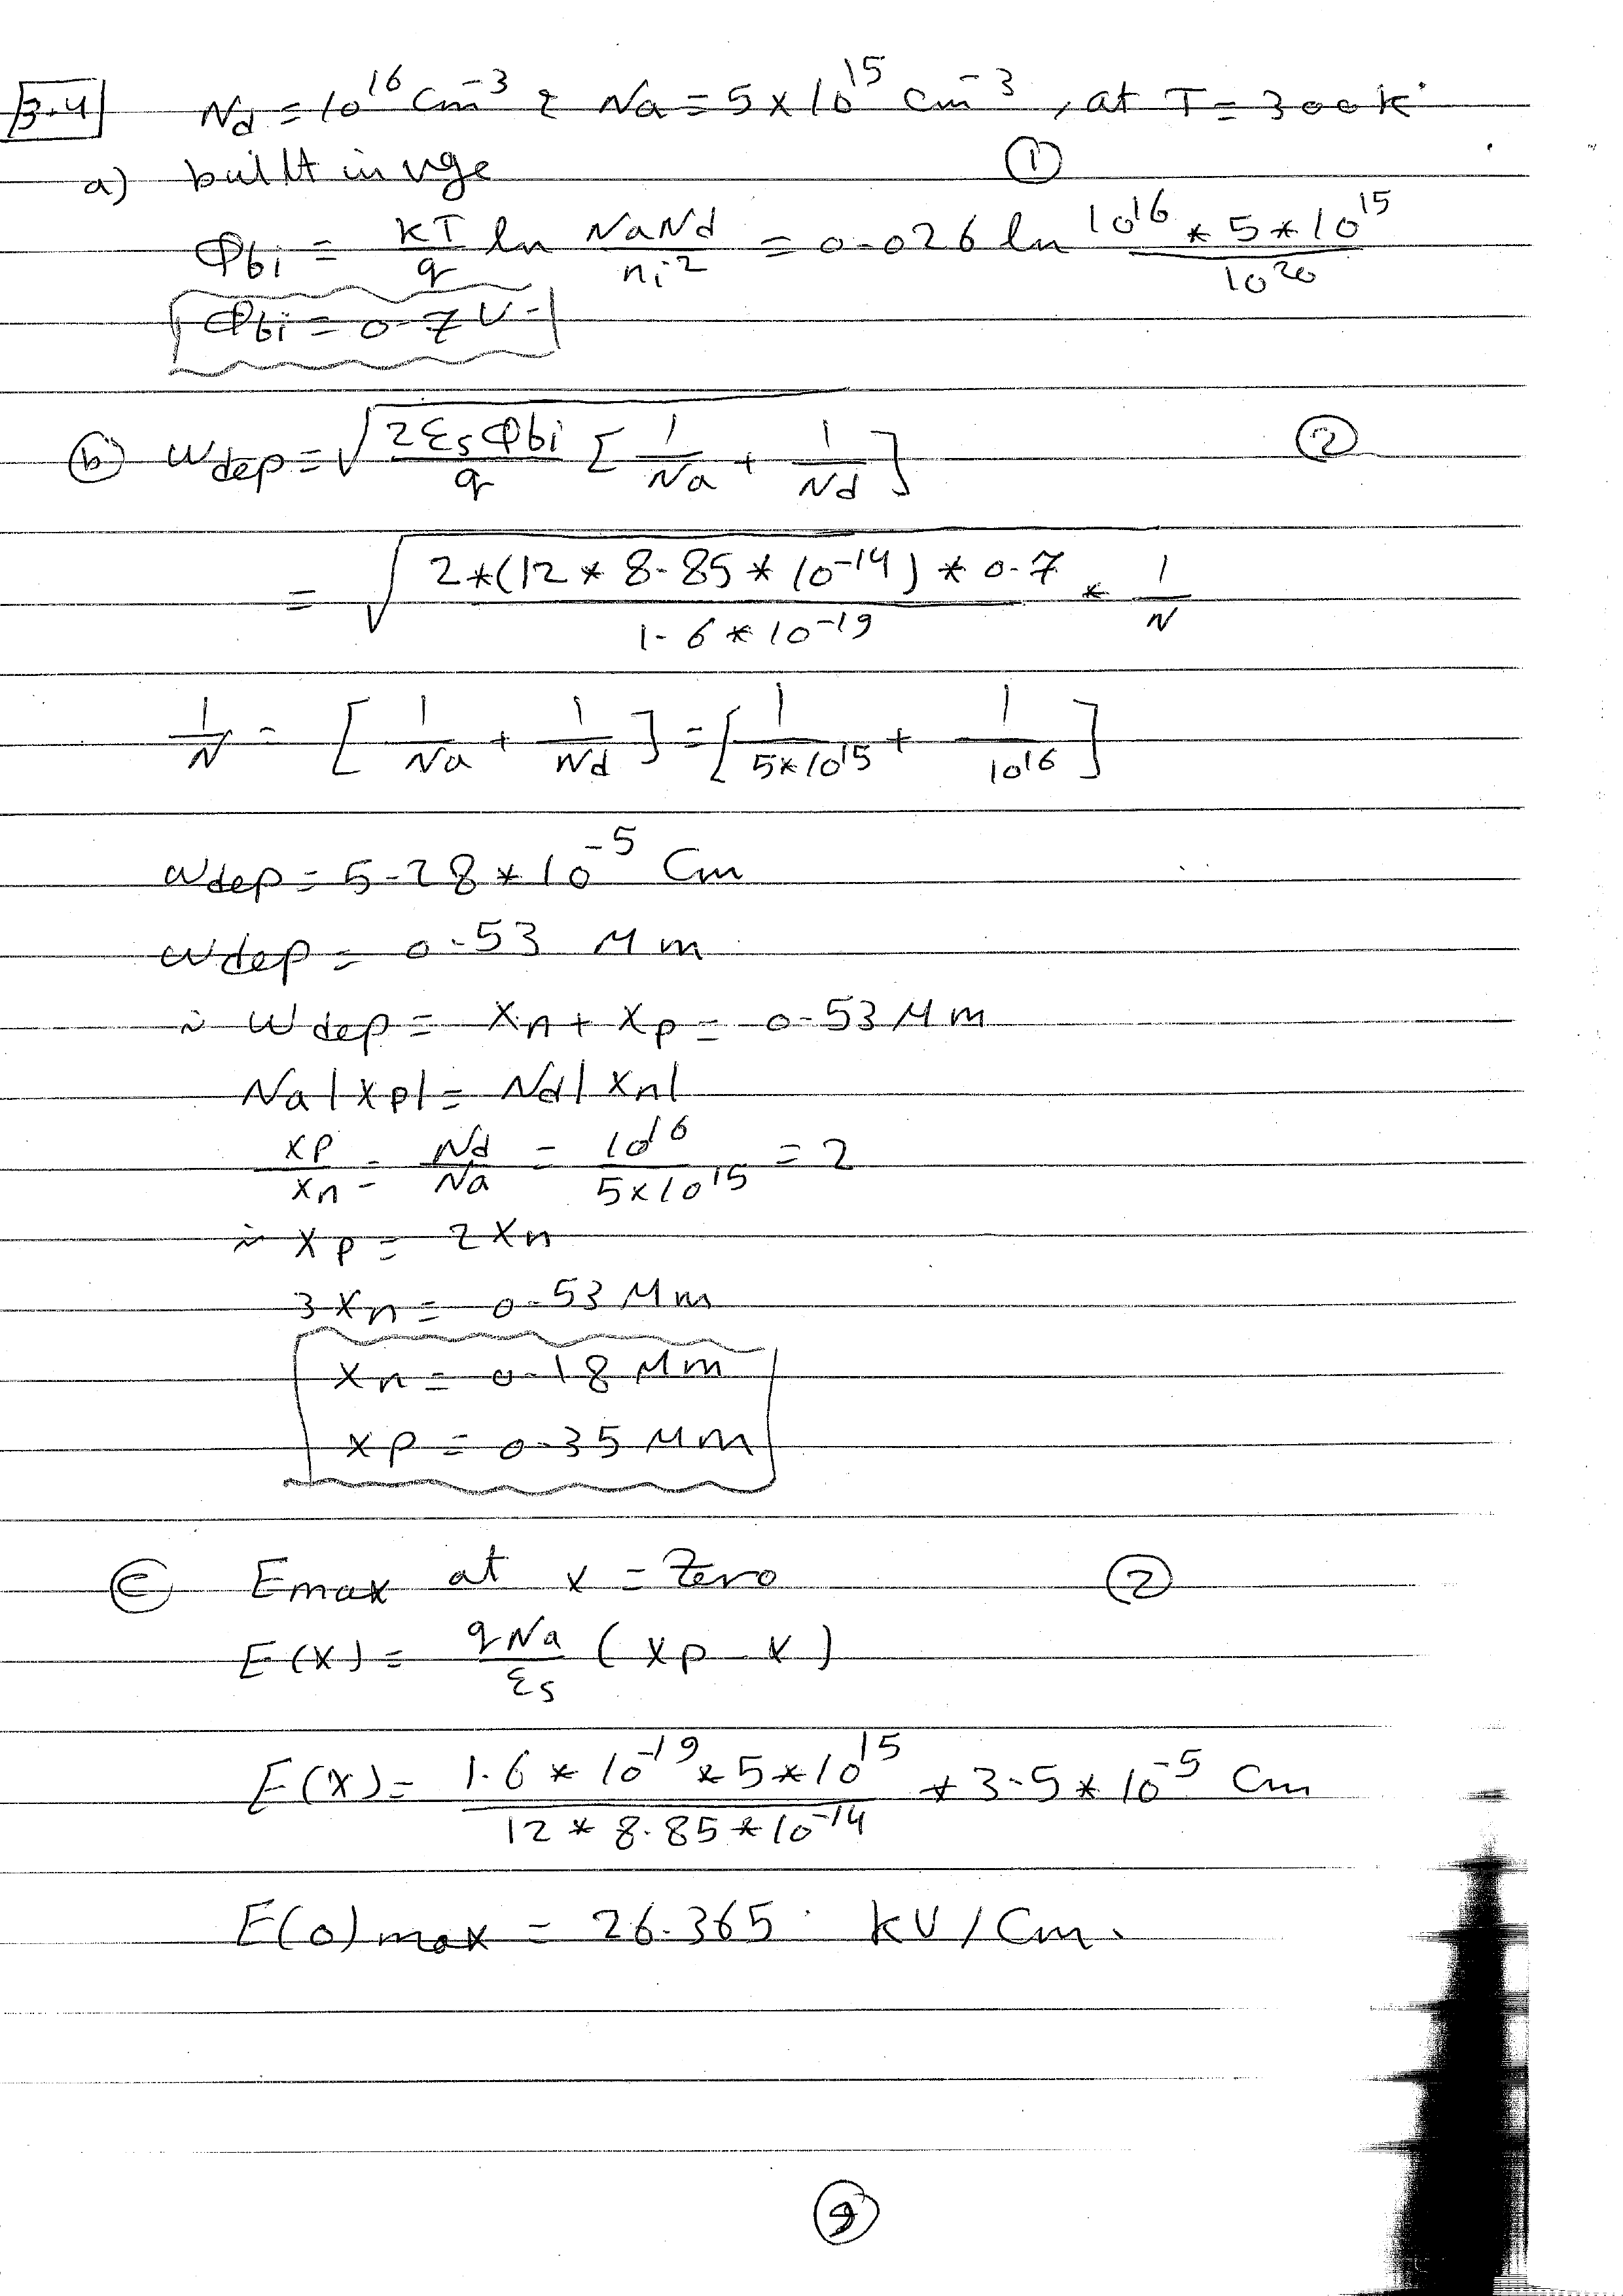 3.4 Nd = 10^16 Cm^-3 & Na = 5 × 10^15 Cm^-3, at T = 300k
a) built in vge ①
Φbi = kT/q ln NaNd/ni^2 = 0.026 ln 10^16 * 5 * 10^15 / 10^20
Φbi = 0.7 V.
(b) Wdep = √(2εsΦbi/q [1/Na + 1/Nd]) ②
= √(2*(12 * 8.85 * 10^-14) * 0.7 / 1.6 * 10^-19 * 1/N)
1/N = [1/Na + 1/Nd] = [1/5*10^15 + 1/10^16]
Wdep = 5.28 * 10^-5 Cm
Wdep = 0.53 Mm
∴ Wdep = Xn + Xp = 0.53 Mm
Na|Xp| = Nd|Xn|
Xp/Xn = Nd/Na = 10^16/5×10^15 = 2
∴ Xp = 2Xn
3Xn = 0.53 Mm
Xn = 0.18 Mm
Xp = 0.35 Mm
(c) Emax at x = Zero ②
E(x) = qNa/εs (xp - x)
E(x) = 1.6 * 10^-19 * 5 * 10^15 / 12 * 8.85 * 10^-14 * 3.5 * 10^-5 Cm
E(0)max = 26.365 kV/Cm.